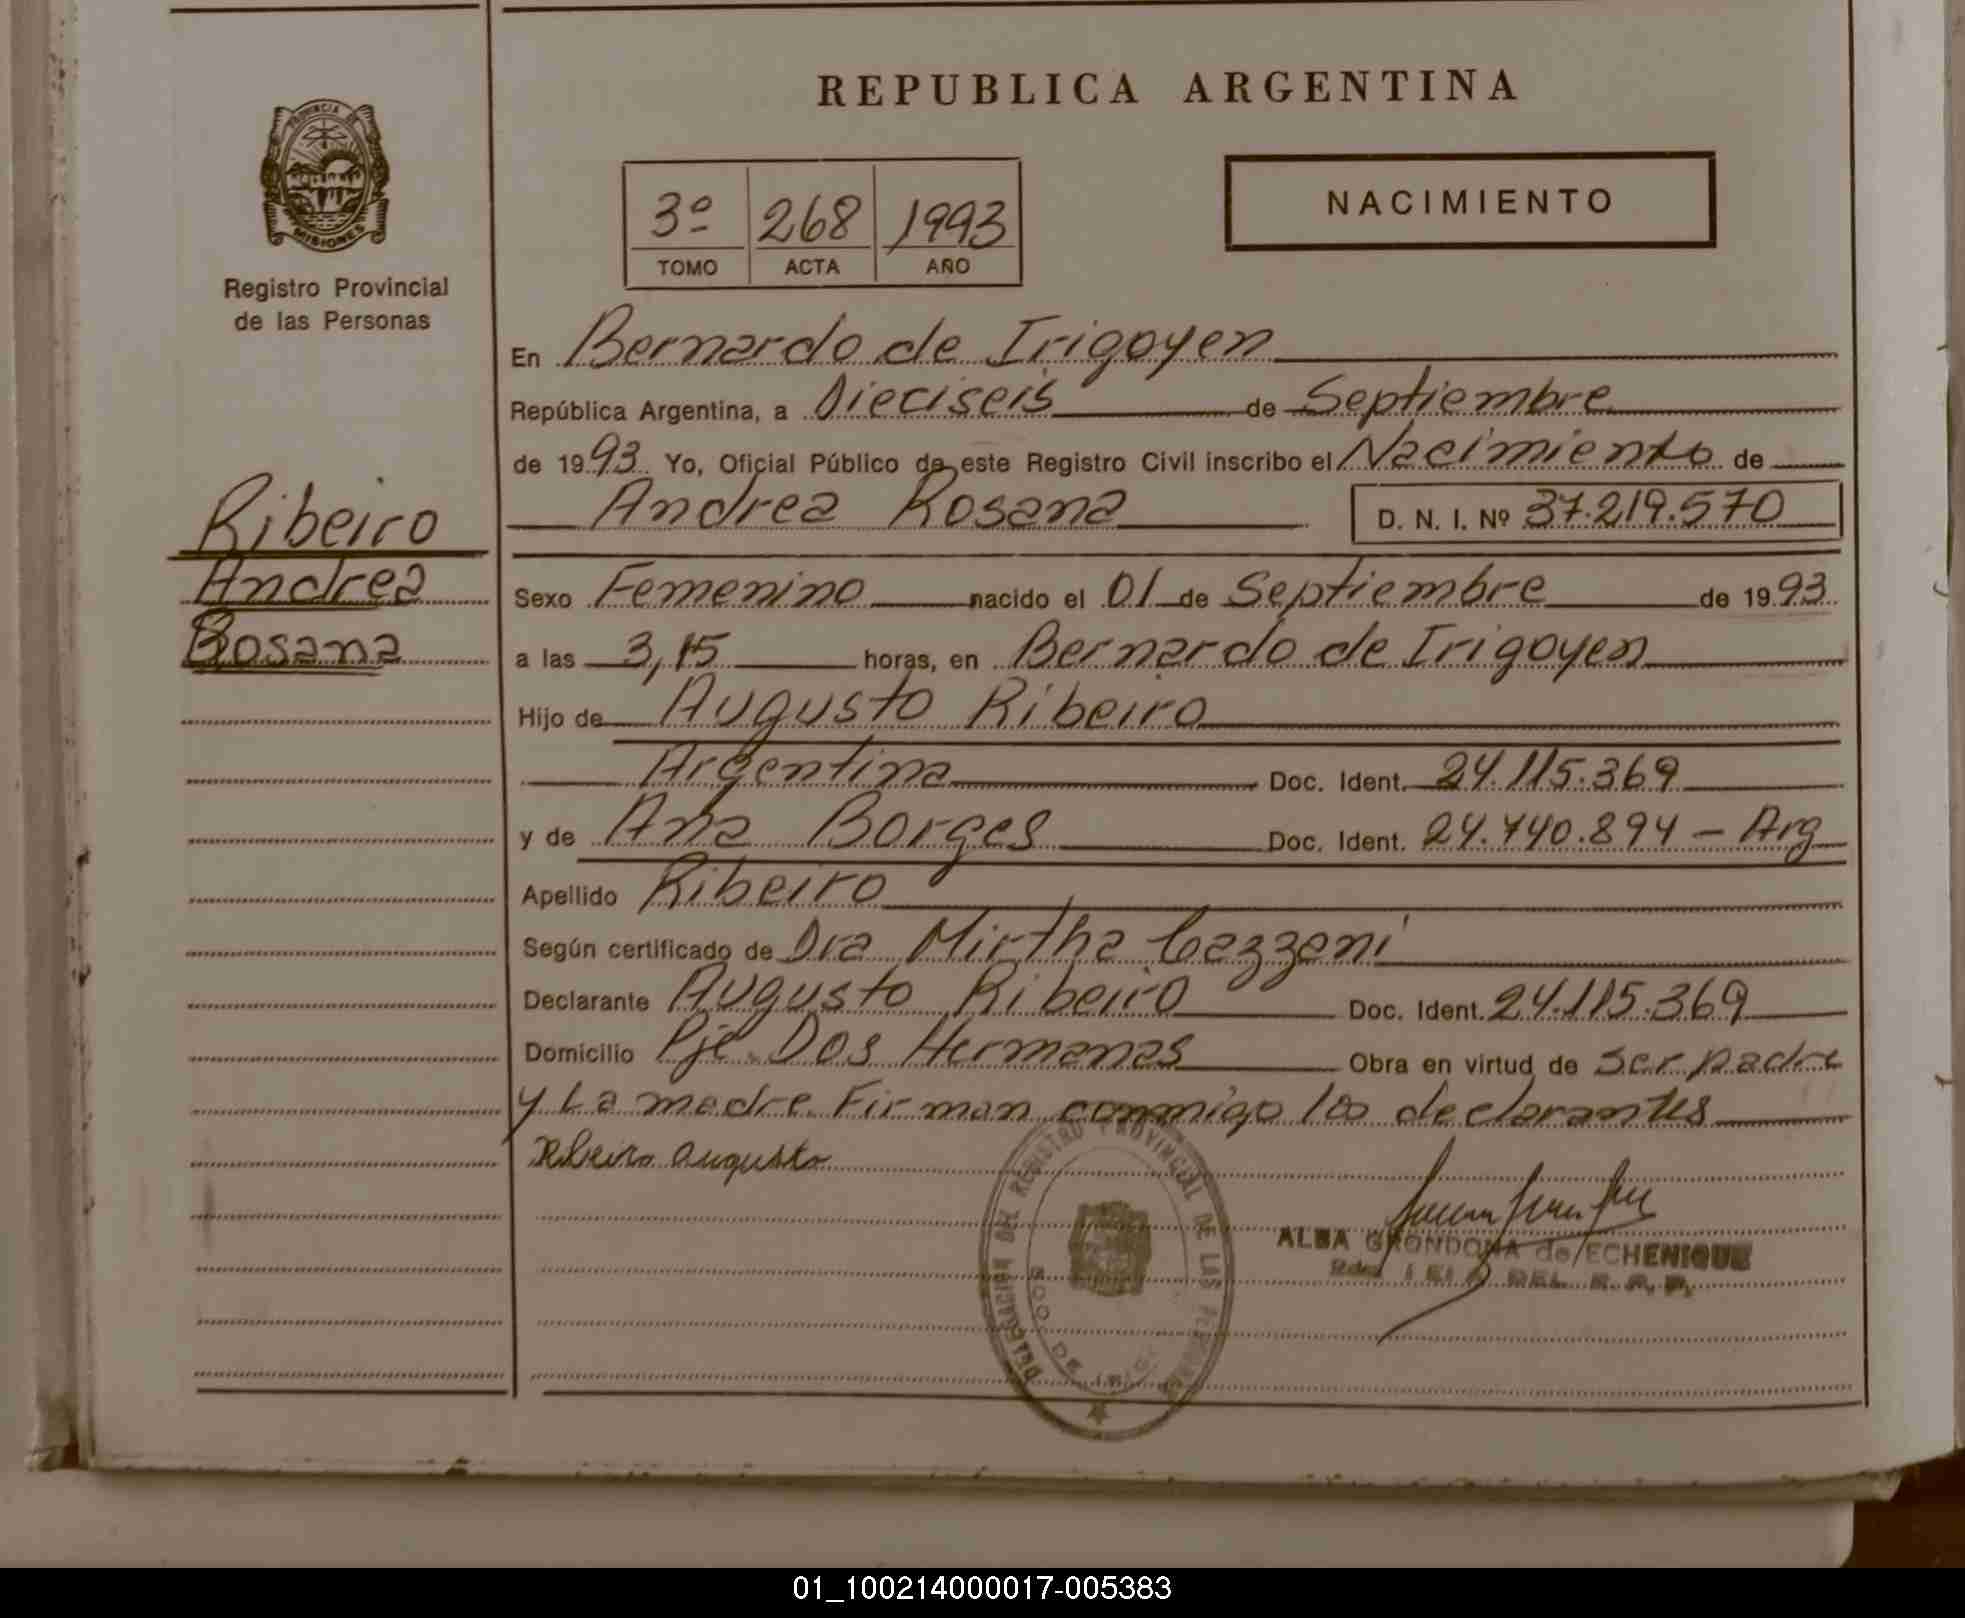 REPUBLICA ARGENTINA
PROVINCIA DE
MISIONES
Registro Provincial
de las Personas
3º 268 1993
TOMO ACTA AÑO
NACIMIENTO
En Bernardo de Irigoyen
República Argentina, a Dieciseis de Septiembre
de 1993 Yo, Oficial Público de este Registro Civil inscribo el Nacimiento de
Andrea Rosana D. N. I. Nº 37.219.570
Ribeiro
Andrea
Rosana
Sexo Femenino nacido el 01 de Septiembre de 1993
a las 3,15 horas, en Bernardo de Irigoyen
Hijo de Augusto Ribeiro
Argentina Doc. Ident. 24.115.369
y de Ana Borges Doc. Ident. 24.740.894 - Arg
Apellido Ribeiro
Según certificado de Dra Mirtha Cazzani
Declarante Augusto Ribeiro Doc. Ident. 24.115.369
Domicilio Pje. Dos Hermanas Obra en virtud de ser padre
y La madre. Firman conmigo los declarantes
Ribeiro Augusto
DELEGACION DEL REGISTRO PROVINCIAL DE LAS
BDO. DE
ALBA GRONDONA de ECHENIQUE
DEL R. P. P.
01_100214000017-005383